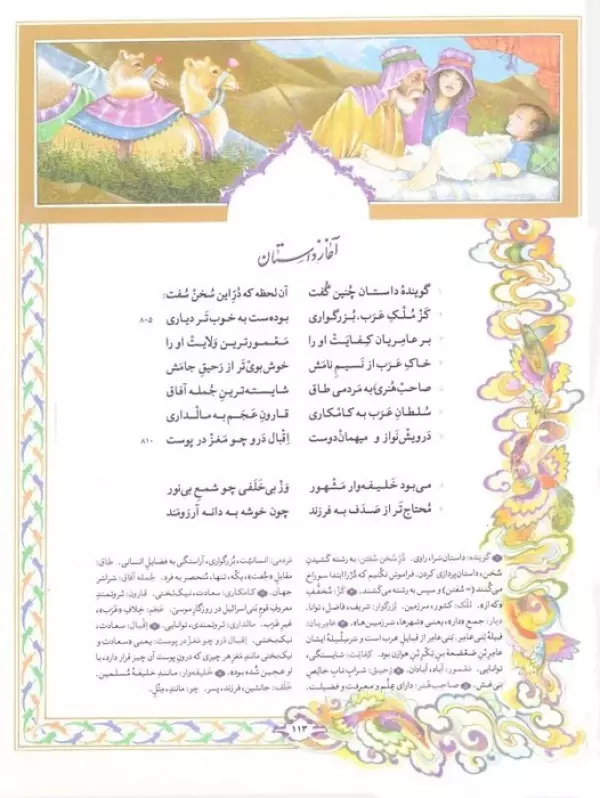 آغاز داستان
گویندهٔ داستان چنین گفت آن لحظه که دُرّ این سخن سُفت:
کز مُلکِ عَرَب، بُزرگواری بوده‌ست به خوب‌تر دیاری ۸۰۵
بر عامریان کِفایَتْ او را مَعْمورترین وَلایَتْ او را
خاکِ عَرَب از نَسیمِ نامَش خوش‌بویْ‌تَر از رَحیقِ جامَش
صاحب‌هُنَری به مَردمی طاق شایسته‌ترینِ جُمله آفاق
سُلطانِ عَرَب به کامکاری قارونِ عَجَم به مالداری
دَرویش‌نَواز و میهمان‌دوست اِقبال دَرو چو مَغز در پوست ۸۱۰
می‌بود خَلیفه‌وار مَشْهور وَزْ بی‌خَلَفی چو شَمعِ بی‌نور
مُحتاج‌تَر از صَدَف به فَرزند چون خوشه به دانه آرزومَند
گوینده: داستان‌سَرا، راوی. دُرِّ سُخَن سُفتَن: به رشته کشیدنِ
سُخَن، داستان‌پردازی کردن. فراموش نکُنیم که دُرّ را ابتدا سوراخ
می‌کُنند (= سُفتن) و سپس به رشته می‌کَشند. کَزْ: مُخَفَّفِ
«که از». مُلک: کشور، سرزمین. بُزرگوار: شریف، فاضل، توانا.
دیار: جمعِ «دار»، یعنی «شهرها، سرزمین‌ها». عامِریان:
قبیلهٔ بَنی عامِر. بَنی عامِر از قبایلِ عرب است و سَرسِلسلهٔ ایشان
عامِربنِ صَعصَعة بنِ بَکربنِ هوازن بود. کِفایَت: شایستگی،
توانایی. مَعْمور: آباد، آبادان. رَحیق: شرابِ نابِ خالِصِ
بی‌غَش. صاحب‌هُنَر: دارای عِلم و معرفت و فضیلت.
مَردمی: انسانیَّت، بُزرگواری، آراستگی به فضایلِ انسانی. طاق:
مقابلِ «جُفت»، یکّه، تنها، مُنحصر به فرد. جُمله آفاق: سَراسَرِ
جهان. کامکاری: سعادت، نیک‌بَختی. قارون: ثروتمندِ
معروفِ قومِ بَنی اسرائیل در روزگارِ موسیٰ. عَجَم: خِلافِ «عَرَب»،
غیرِ عَرَب. مالداری: ثروتمندی، توانایی. اِقبال: سعادت،
نیک‌بَختی. اِقبال دَرو چو مَغز در پوست: یعنی «سعادت و
نیک‌بَختی مانندِ مَغزِ هر چیزی که درونِ پوستِ آن چیز قرار دارد، با
او عَجین شده بود». خَلیفه‌وار: مانندِ خلیفهٔ مُسلِمین.
خَلَف: جانشین، فرزند، پسر. چو: مانندِ، مِثلِ.
۱۱۳